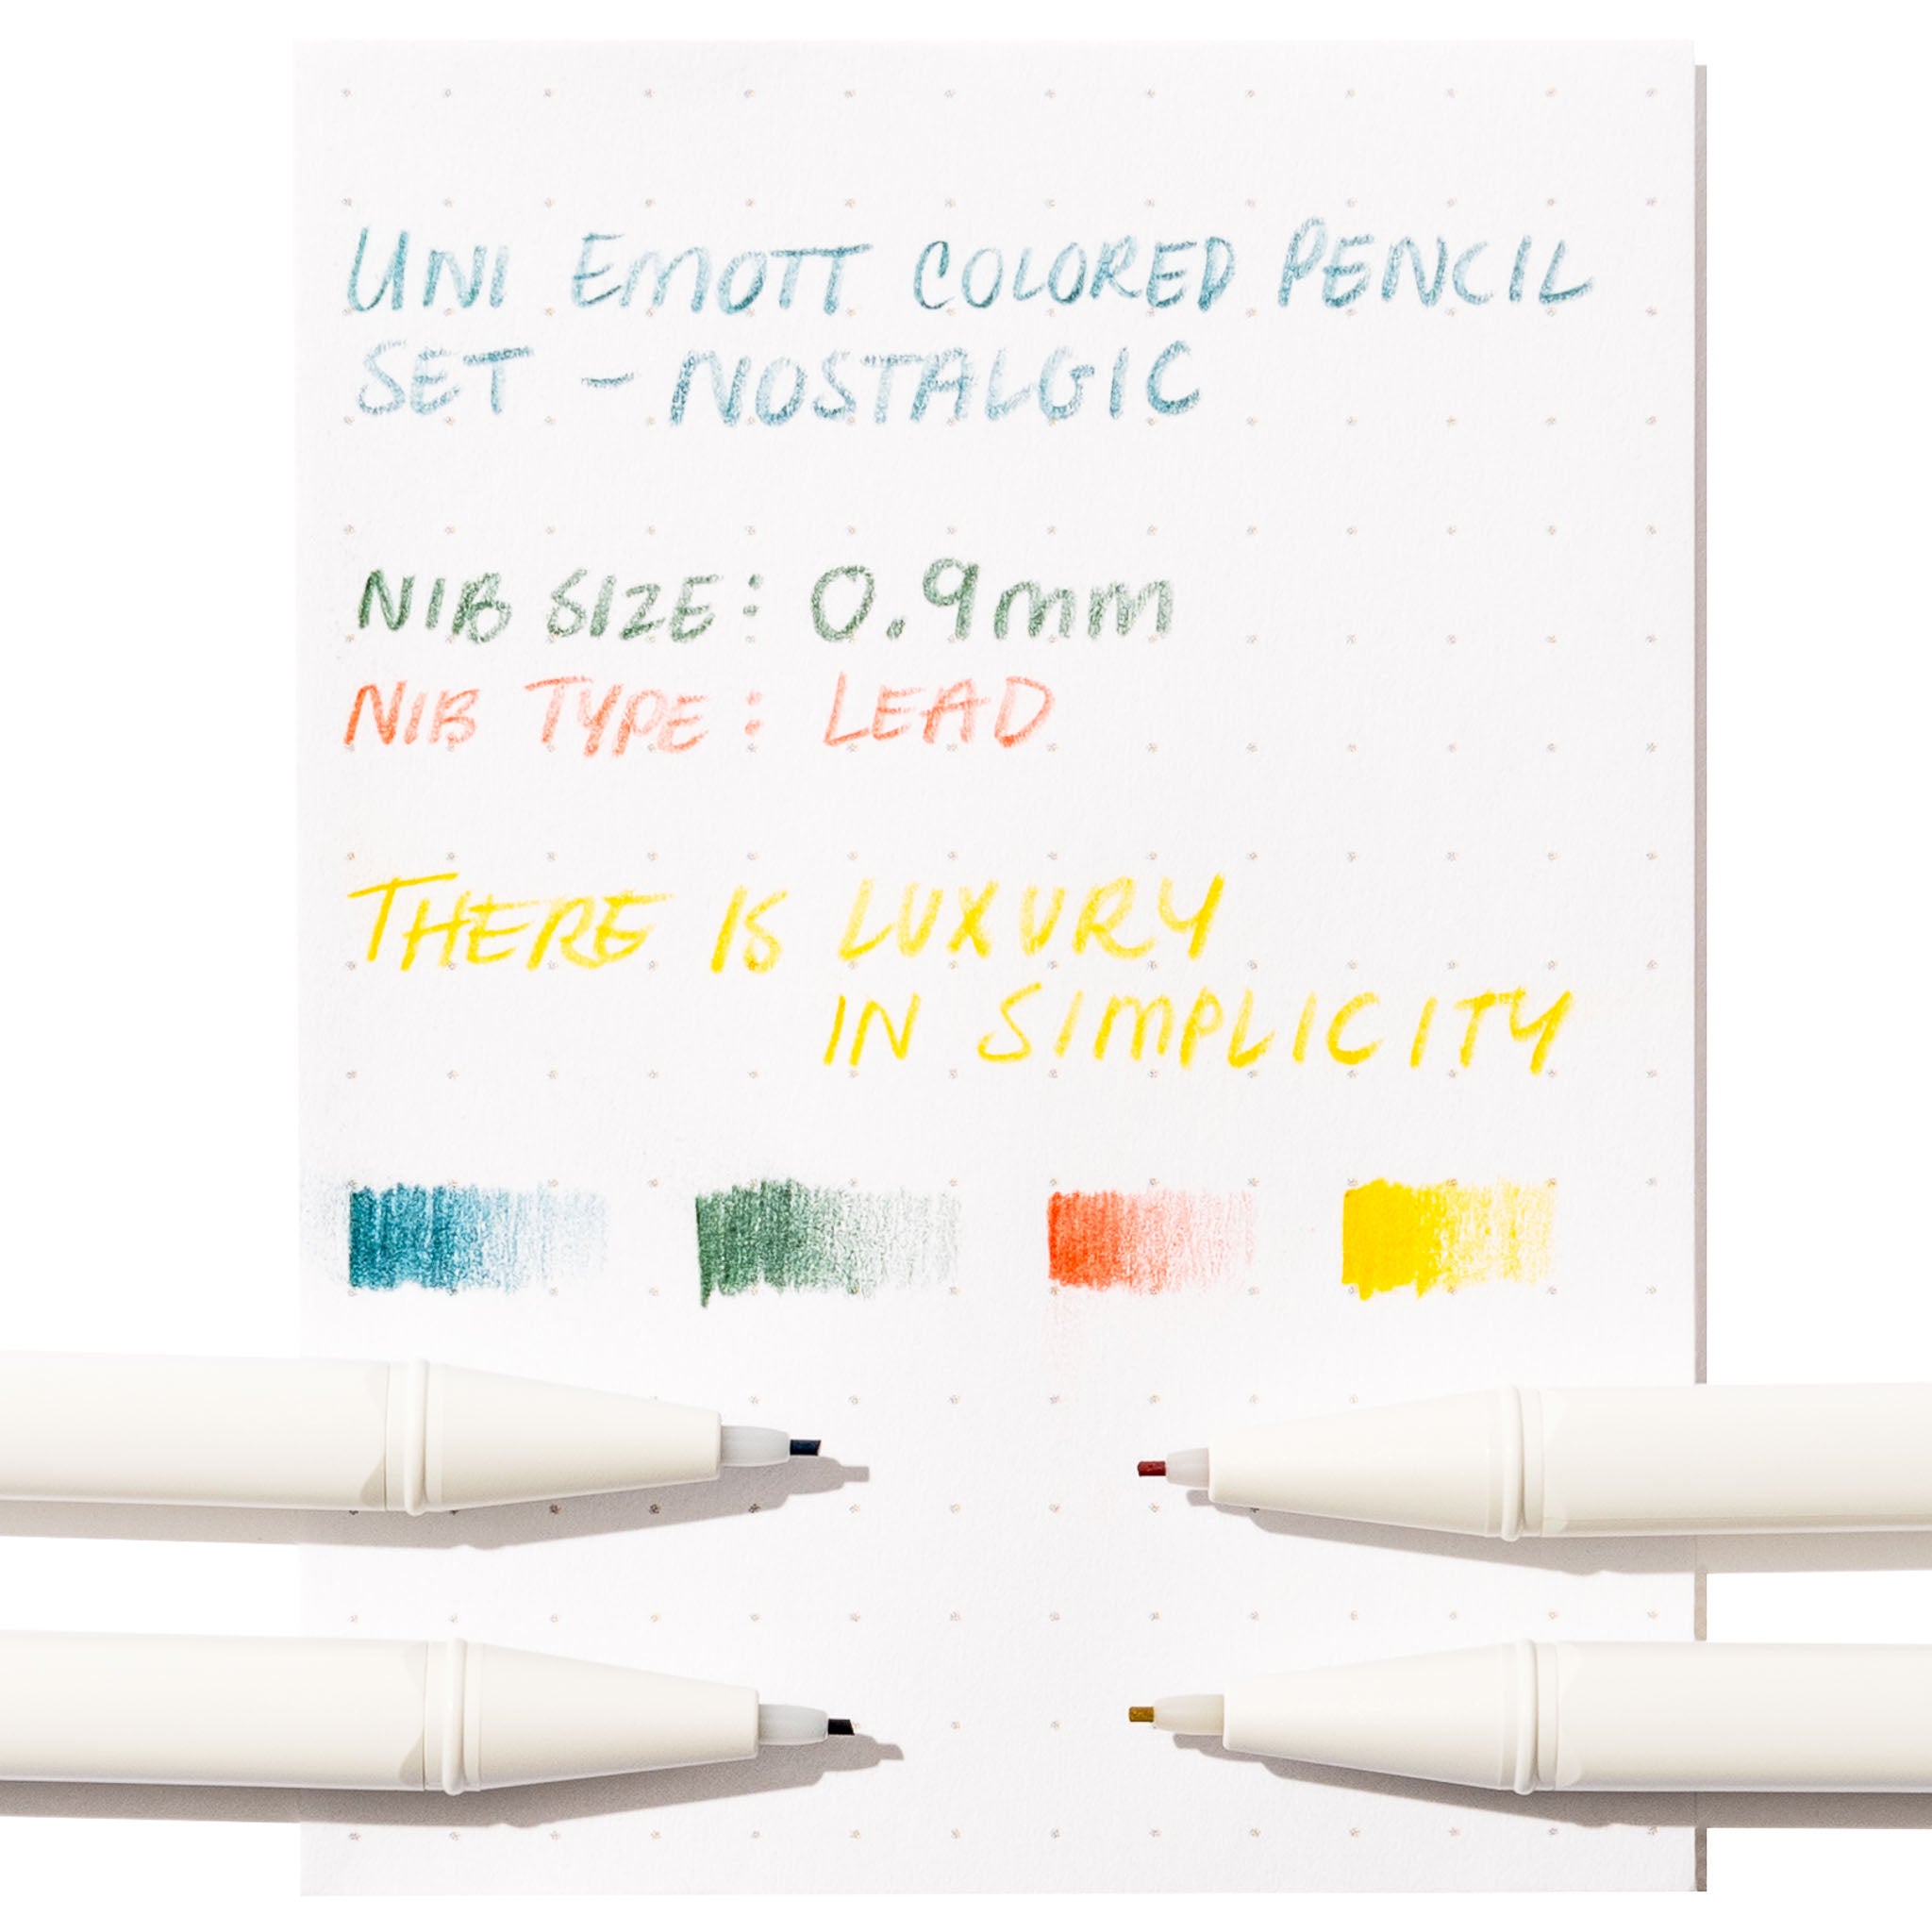 UNI EMOTT COLORED PENCIL
SET - NOSTALGIC
NIB SIZE: 0.9mm
NIB TYPE: LEAD
THERE IS LUXURY
IN SIMPLICITY